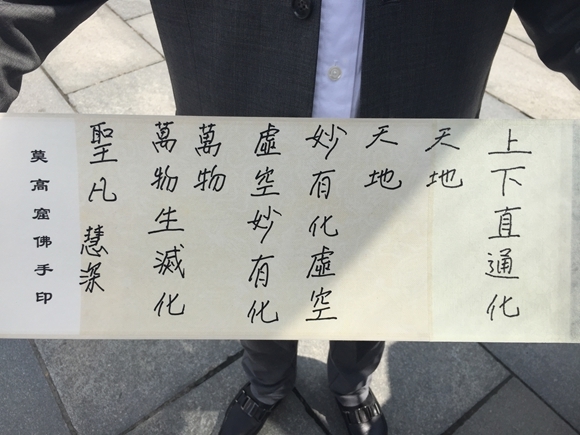 上下直通化
天地
天地
妙有化虛空
虛空妙有化
萬物
萬物生滅化
聖凡 慧深
莫高窟佛手印